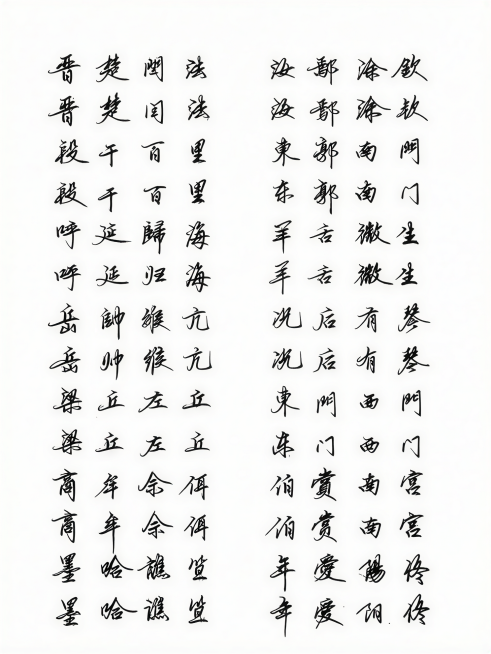 晋楚閆法 汝鄢涂欽
晋楚闫法 汝鄢涂钦
段干百里 東郭南門
段干百里 东郭南门
呼延歸海 羊舌微生
呼延归海 羊舌微生
岳帥緱亢 况后有琴
岳帅缑亢 况后有琴
梁丘左丘 東門西門
梁丘左丘 东门西门
商牟佘佴 伯賞南宫
商牟佘佴 伯赏南宫
墨哈譙笪 年愛陽佟
墨哈谯笪 年爱阳佟